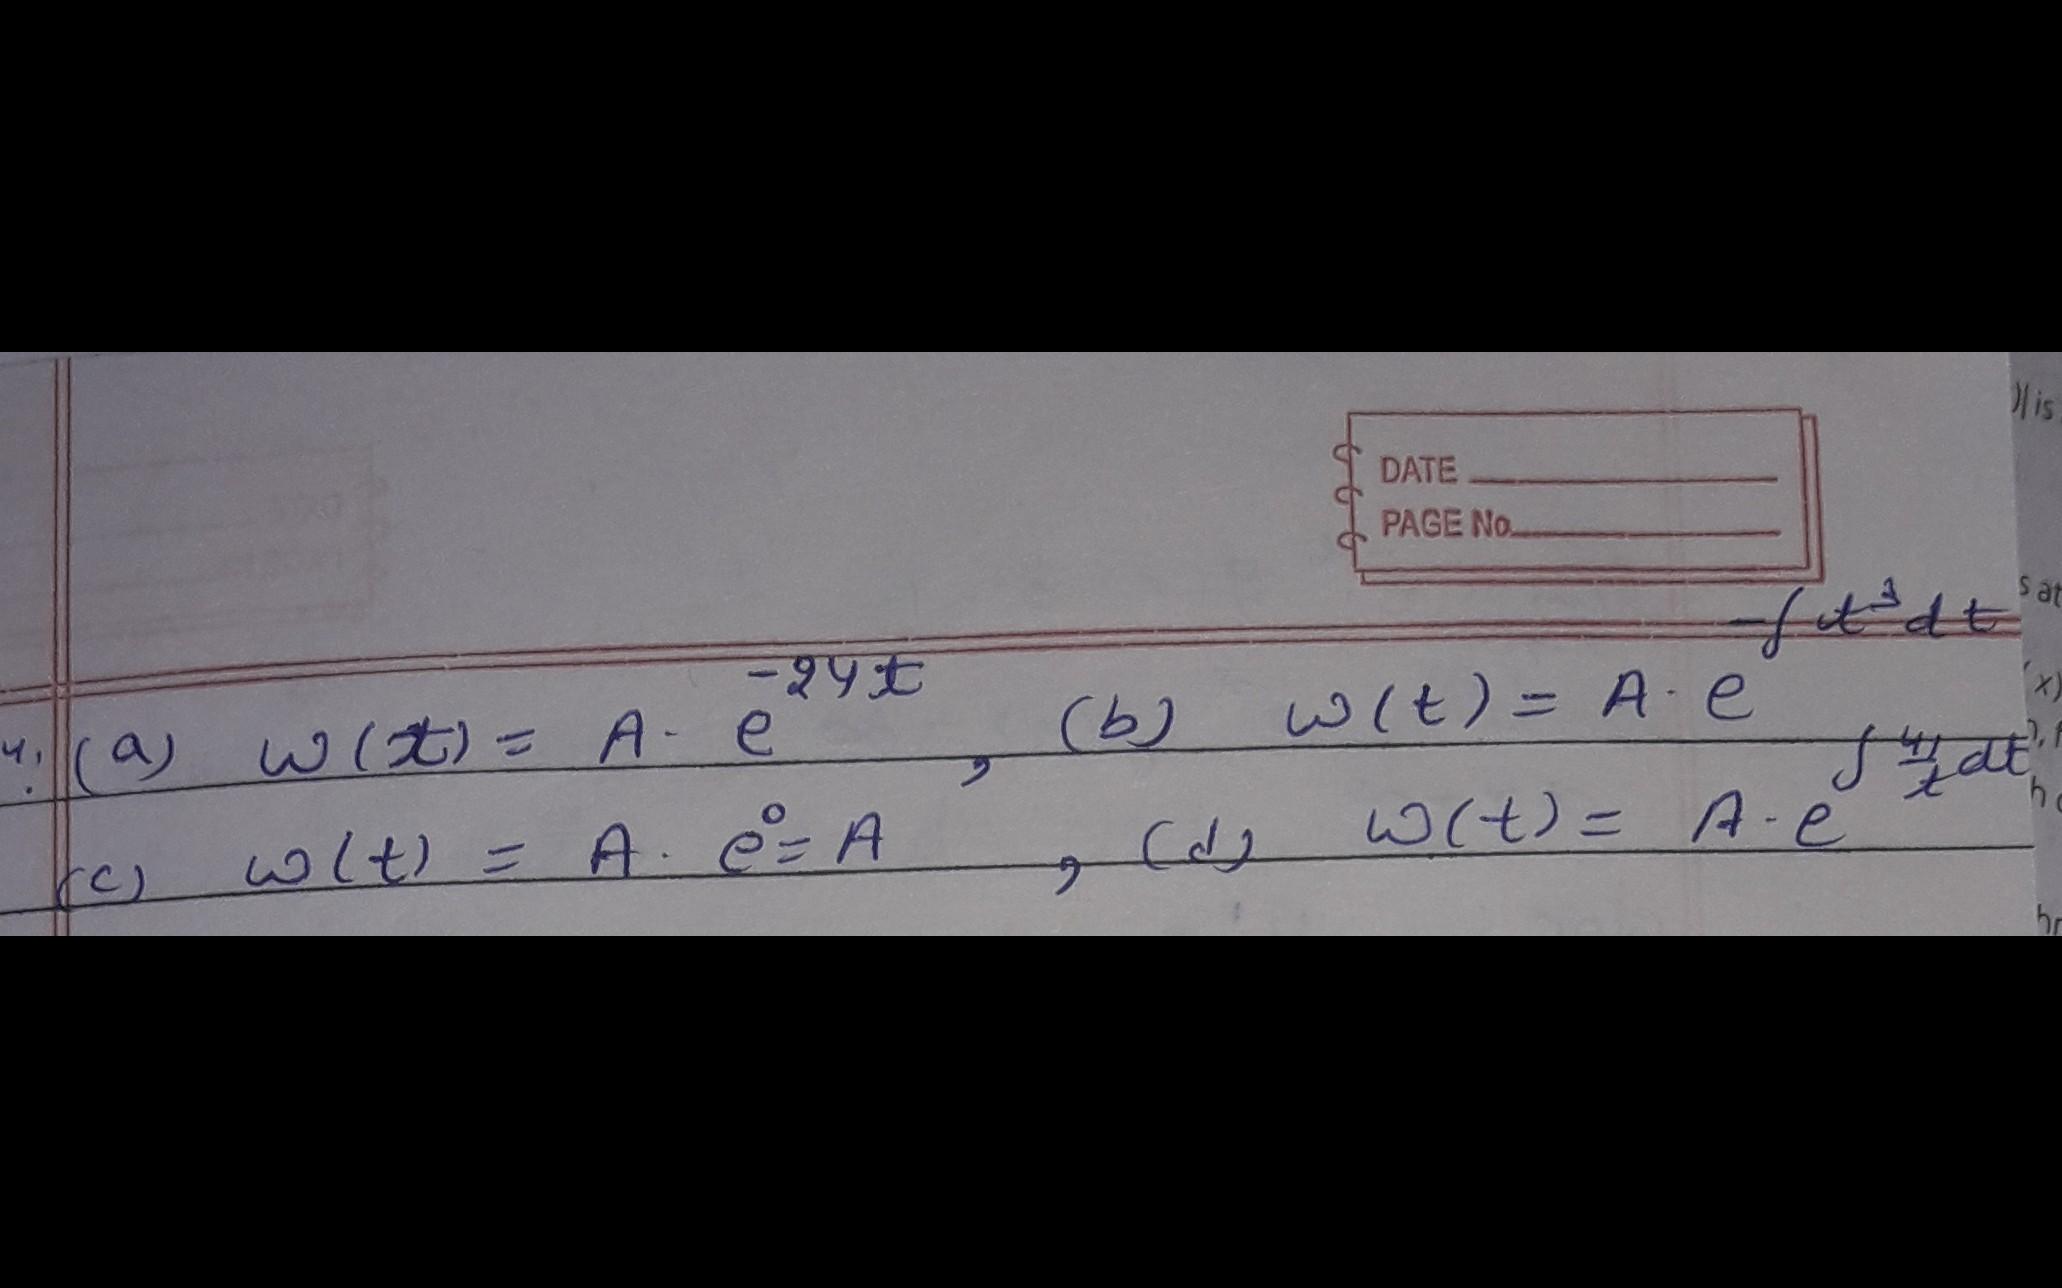 DATE
PAGE No.
4. (a) w(t) = A · e^{-24t} , (b) w(t) = A · e^{-∫t³dt}
(c) w(t) = A · e⁰ = A , (d) w(t) = A · e^{∫\frac{4}{t}dt}